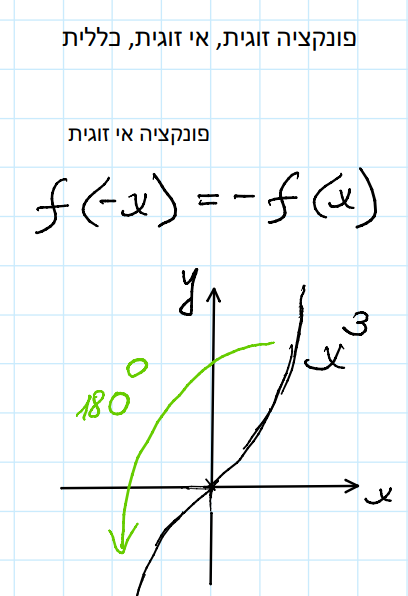 פונקציה זוגית, אי זוגית, כללית
פונקציה אי זוגית
f(-x) = -f(x)
y
x³
180°
x